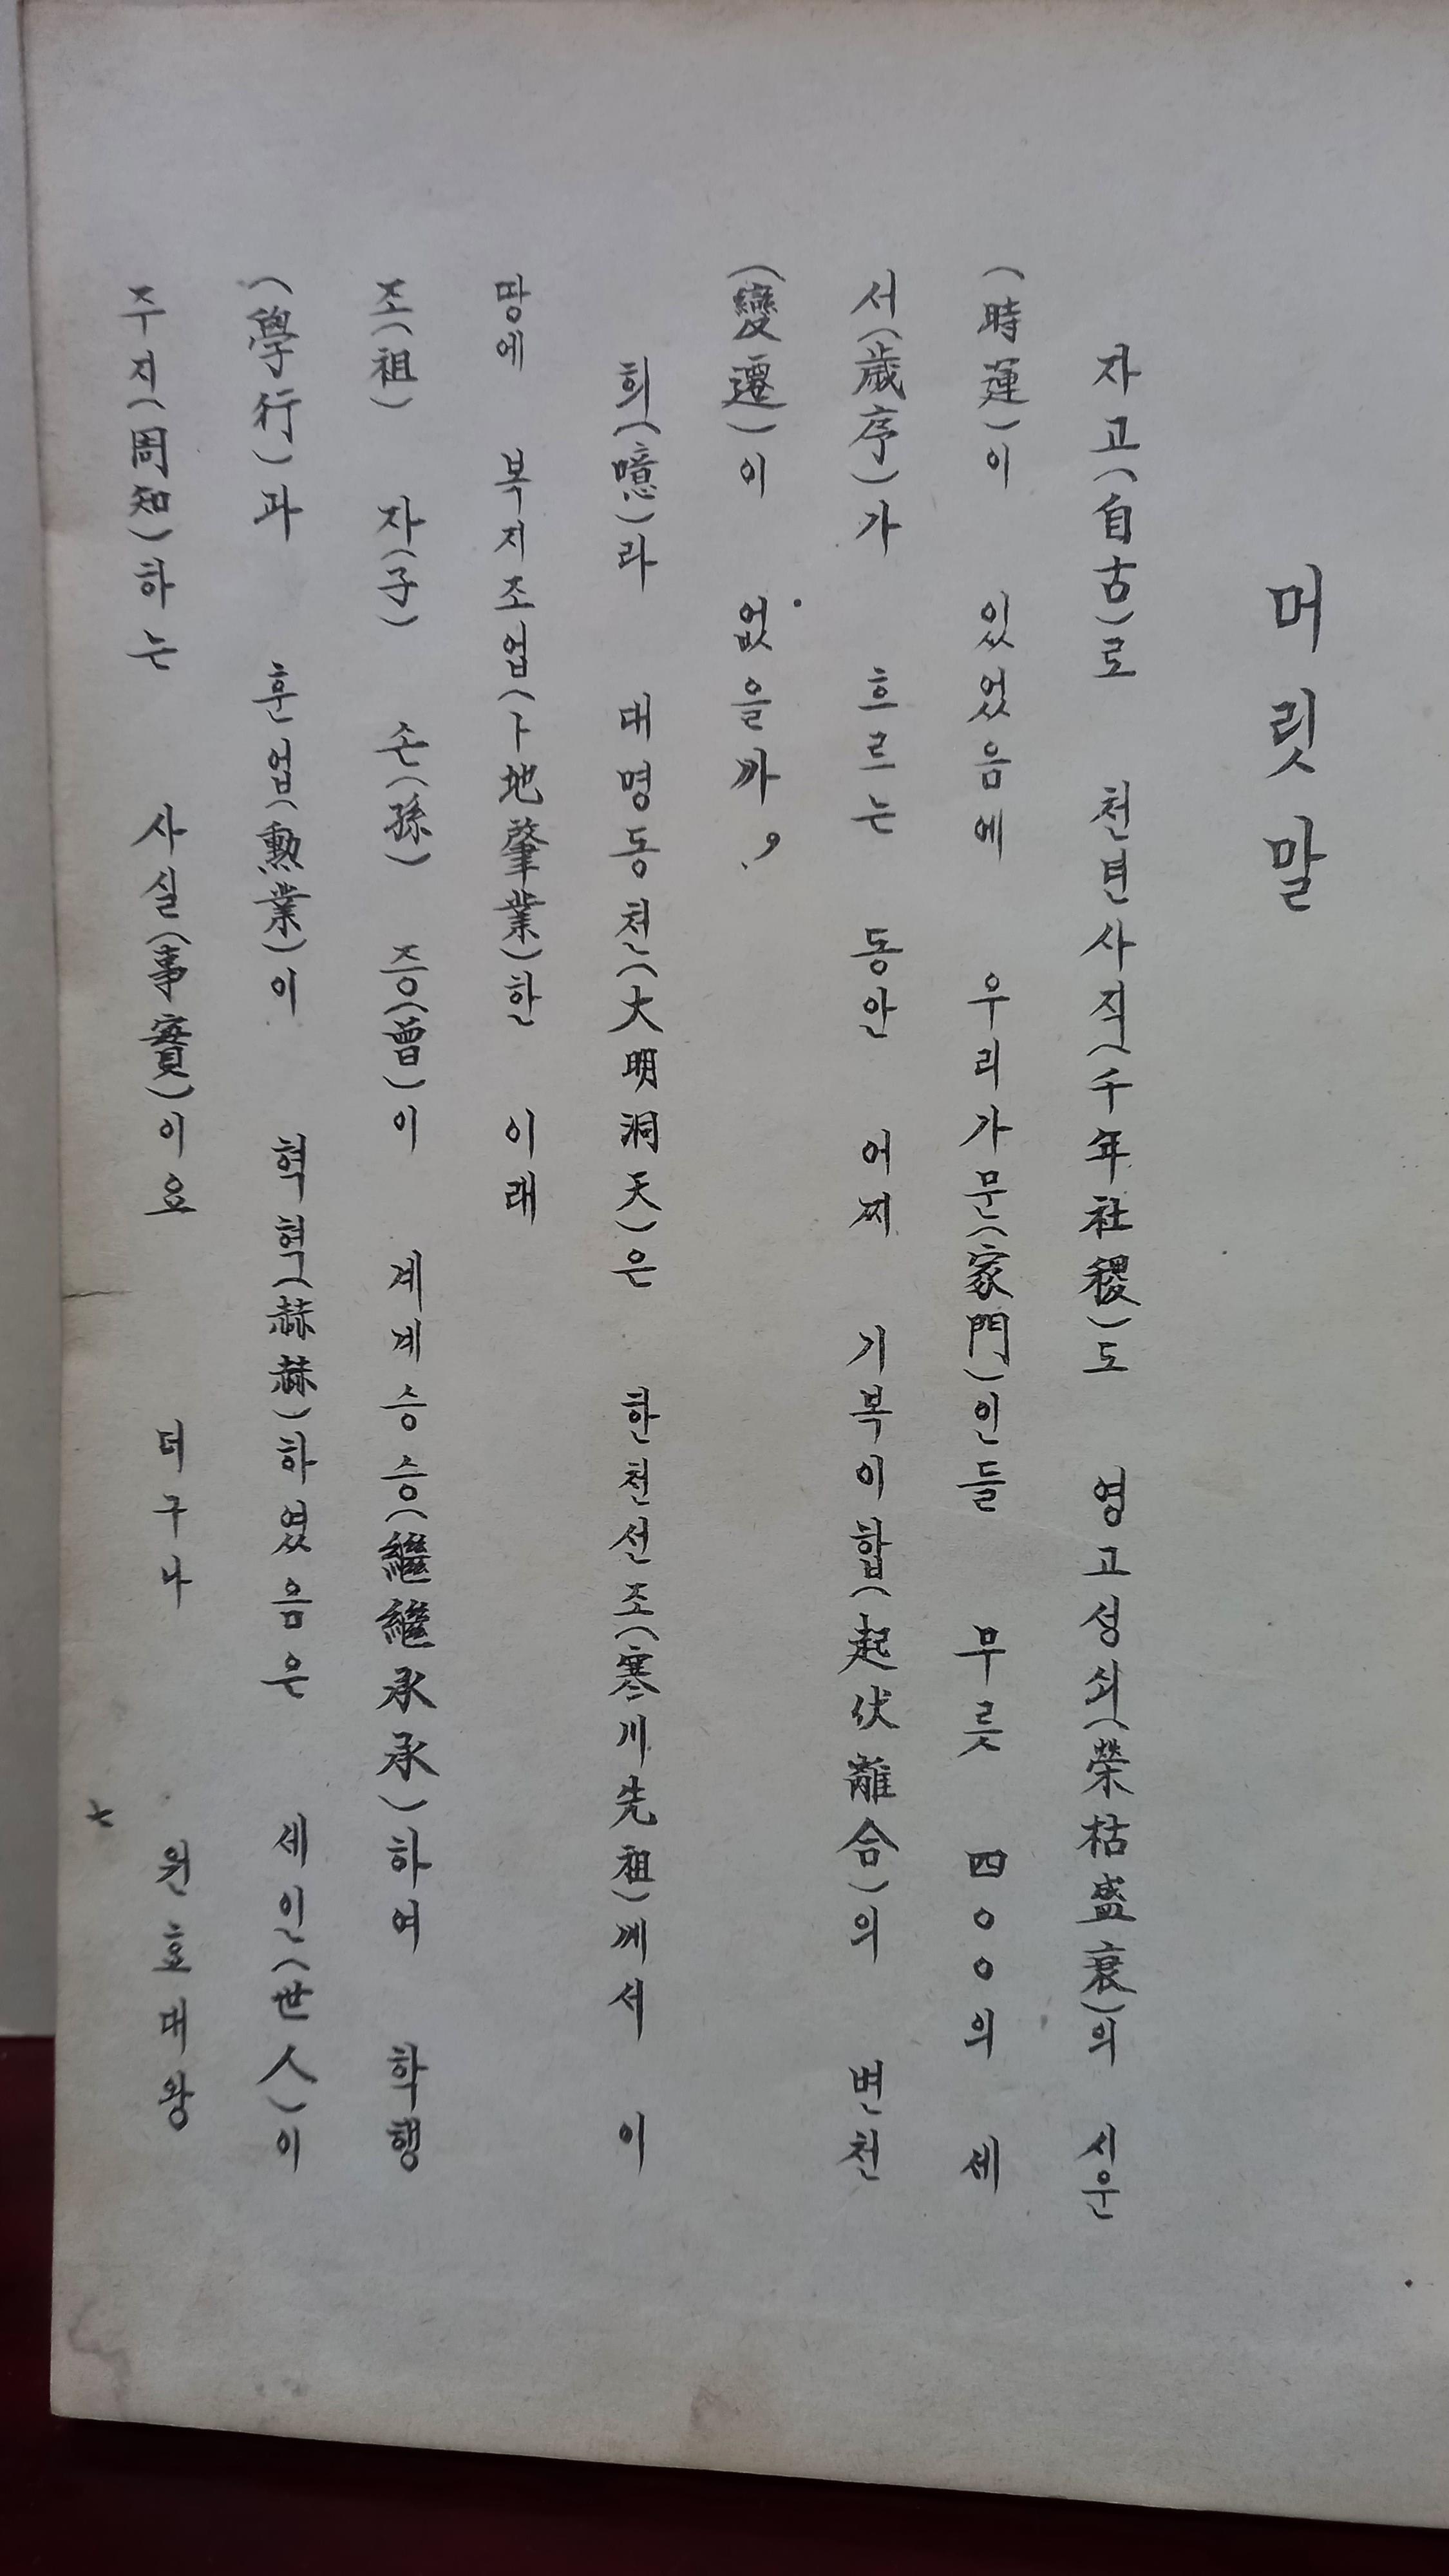 머릿말
자고(自古)로 천년사직(千年社稷)도 영고성쇠(榮枯盛衰)의 시운
(時運)이 있었음에 우리가문(家門)인들 무릇 四〇〇의 세
서(歲序)가 흐르는 동안 어찌 기복이합(起伏離合)의 변천
(變遷)이 없을까?
희(噫)라 대명동천(大明洞天)은 한천선조(寒川先祖)께서 이
땅에 복지조업(卜地肇業)한 이래
조(祖) 자(子) 손(孫) 증(曾)이 계계승승(繼繼承承)하여 학행
(學行)과 훈업(勳業)이 혁혁(赫赫)하였음은 세인(世人)이
주지(周知)하는 사실(事實)이요 더구나 원호대왕
七